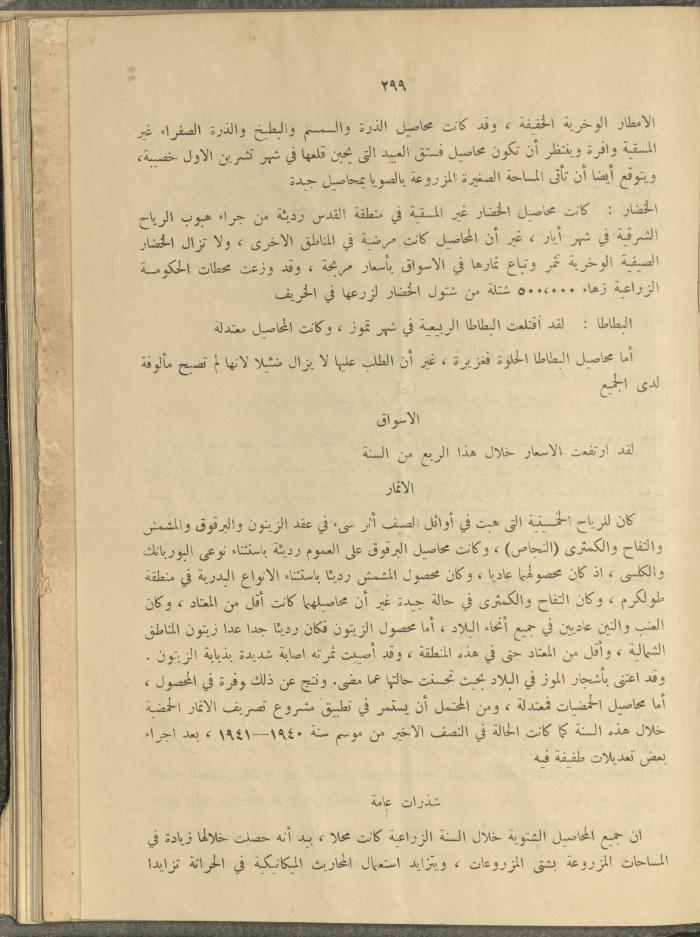 ٢٩٩
الامطار الوخرية الخفيفة ، وقد كانت محاصيل الذرة والسمسم والبطيخ والذرة الصفراء غير
المسقية وافرة وينتظر أن تكون محاصيل فستق العبيد التى يحين قلعها في شهر تشرين الاول خصيبة،
ويتوقع أيضا أن تأتى المساحة الصغيرة المزروعة بالصويا بمحاصيل جيدة
الخضار : كانت محاصيل الخضار غير المسقية في منطقة القدس رديئة من جراء هبوب الرياح
الشرقية في شهر أيار ، غير أن المحاصيل كانت مرضية في المناطق الاخرى ، ولا تزال الخضار
الصيفية الوخرية تثمر وتباع ثمارها في الاسواق بأسعار مربحة ، وقد وزعت محطات الحكومة
الزراعية زهاء ٥٠٠،٠٠٠ شتلة من شتول الخضار لزرعها في الخريف
البطاطا : لقد اقتلعت البطاطا الربيعية في شهر تموز ، وكانت المحاصيل معتدلة
أما محاصيل البطاطا الحلوة فغزيرة ، غير أن الطلب عليها لا يزال ضئيلا لانها لم تصبح مألوفة
لدى الجميع
الاسواق
لقد ارتفعت الاسعار خلال هذا الربع من السنة
الاثمار
كان للرياح الخمسينية التى هبت في أوائل الصيف أثر سىء في عقد الزيتون والبرقوق والمشمش
والتفاح والكمثرى (النجاص) ، وكانت محاصيل البرقوق على العموم رديئة باستثناء نوعى البوربانك
والكلسى ، اذ كان محصولهما عاديا ، وكان محصول المشمش رديئا باستثناء الانواع البدرية في منطقة
طولكرم ، وكان التفاح والكمثرى في حالة جيدة غير أن محاصيلهما كانت أقل من المعتاد ، وكان
العنب والتين عاديين في جميع أنحاء البلاد ، أما محصول الزيتون فكان رديئا جدا عدا زيتون المناطق
الشمالية ، وأقل من المعتاد حتى في هذه المنطقة ، وقد أصيبت ثمرته اصابة شديدة بذبابة الزيتون .
وقد اعتنى بأشجار الموز في البلاد بحيث تحسنت حالتها عما مضى. ونتج عن ذلك وفرة في المحصول ،
أما محاصيل الحمضيات فمعتدلة ، ومن المحتمل أن يستمر في تطبيق مشروع تصريف الاثمار الحمضية
خلال هذه السنة كما كانت الحالة في النصف الاخير من موسم سنة ١٩٤٠—١٩٤١ ، بعد اجراء
بعض تعديلات طفيفة فيه
شذرات عامة
ان جميع المحاصيل الشتوية خلال السنة الزراعية كانت محلا ، بيد أنه حصلت خلالها زيادة في
المساحات المزروعة بشتى المزروعات ، ويتزايد استعمال المحاريث الميكانيكية في الحراثة تزايدا